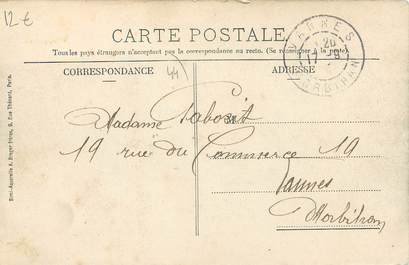 12€
CARTE POSTALE
Tous les pays étrangers n'acceptent pas la correspondance au recto. (Se renseigner à la poste)
CORRESPONDANCE
44
ADRESSE
VANNES
MORBIHAN
Madame
19 rue du Commerce 19
Vannes
Morbihan
Simi-Aquarelle A. Breger frères, 9, Rue Thénard, Paris.